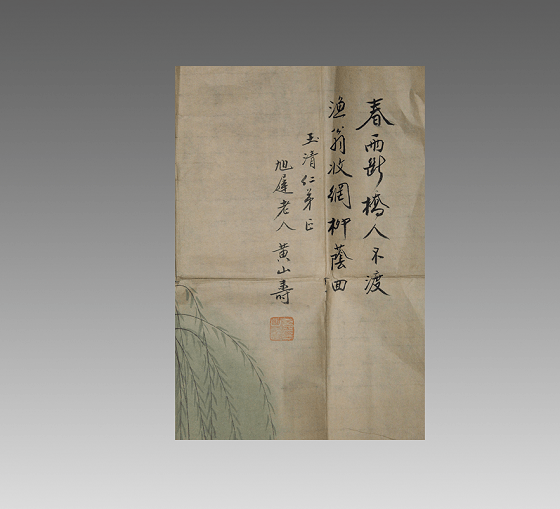 春雨断橋人不渡
漁翁收網柳蔭回
玉清仁弟正
旭遲老人 黃山壽